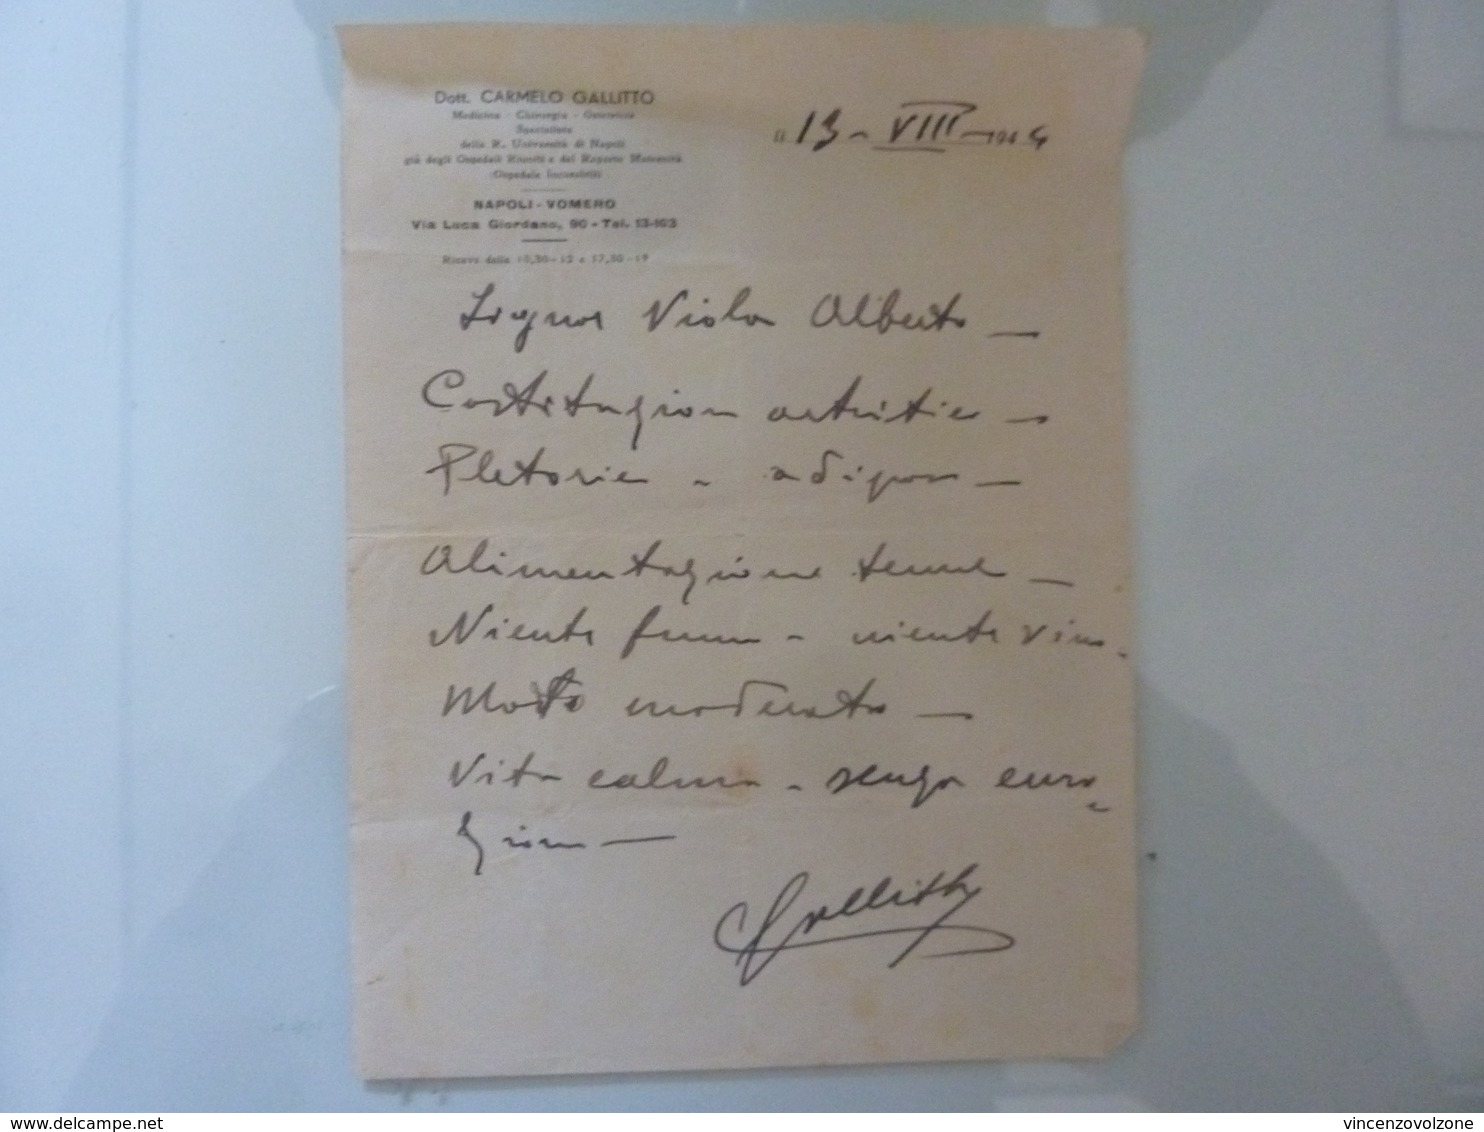 Dott. CARMELO GALLITTO
Medicina - Chirurgia - Ostetricia
Specialista
della R. Università di Napoli
già degli Ospedali Riuniti e del Reparto Maternità
Ospedale Incurabili
NAPOLI - VOMERO
Via Luca Giordano, 90 - Tel. 13-103
Riceve dalle 10,30-12 e 17,30-19
li 13 - VIII - 1944
Signor Viola Alberto —
Costituzion artritica —
Pletorica - adiposa —
Alimentazione tenue —
Niente fumo - niente vino -
Moto moderato —
Vita calma - senza emo-
zioni —
Gallitto
delcampe.net
vincenzovolzone